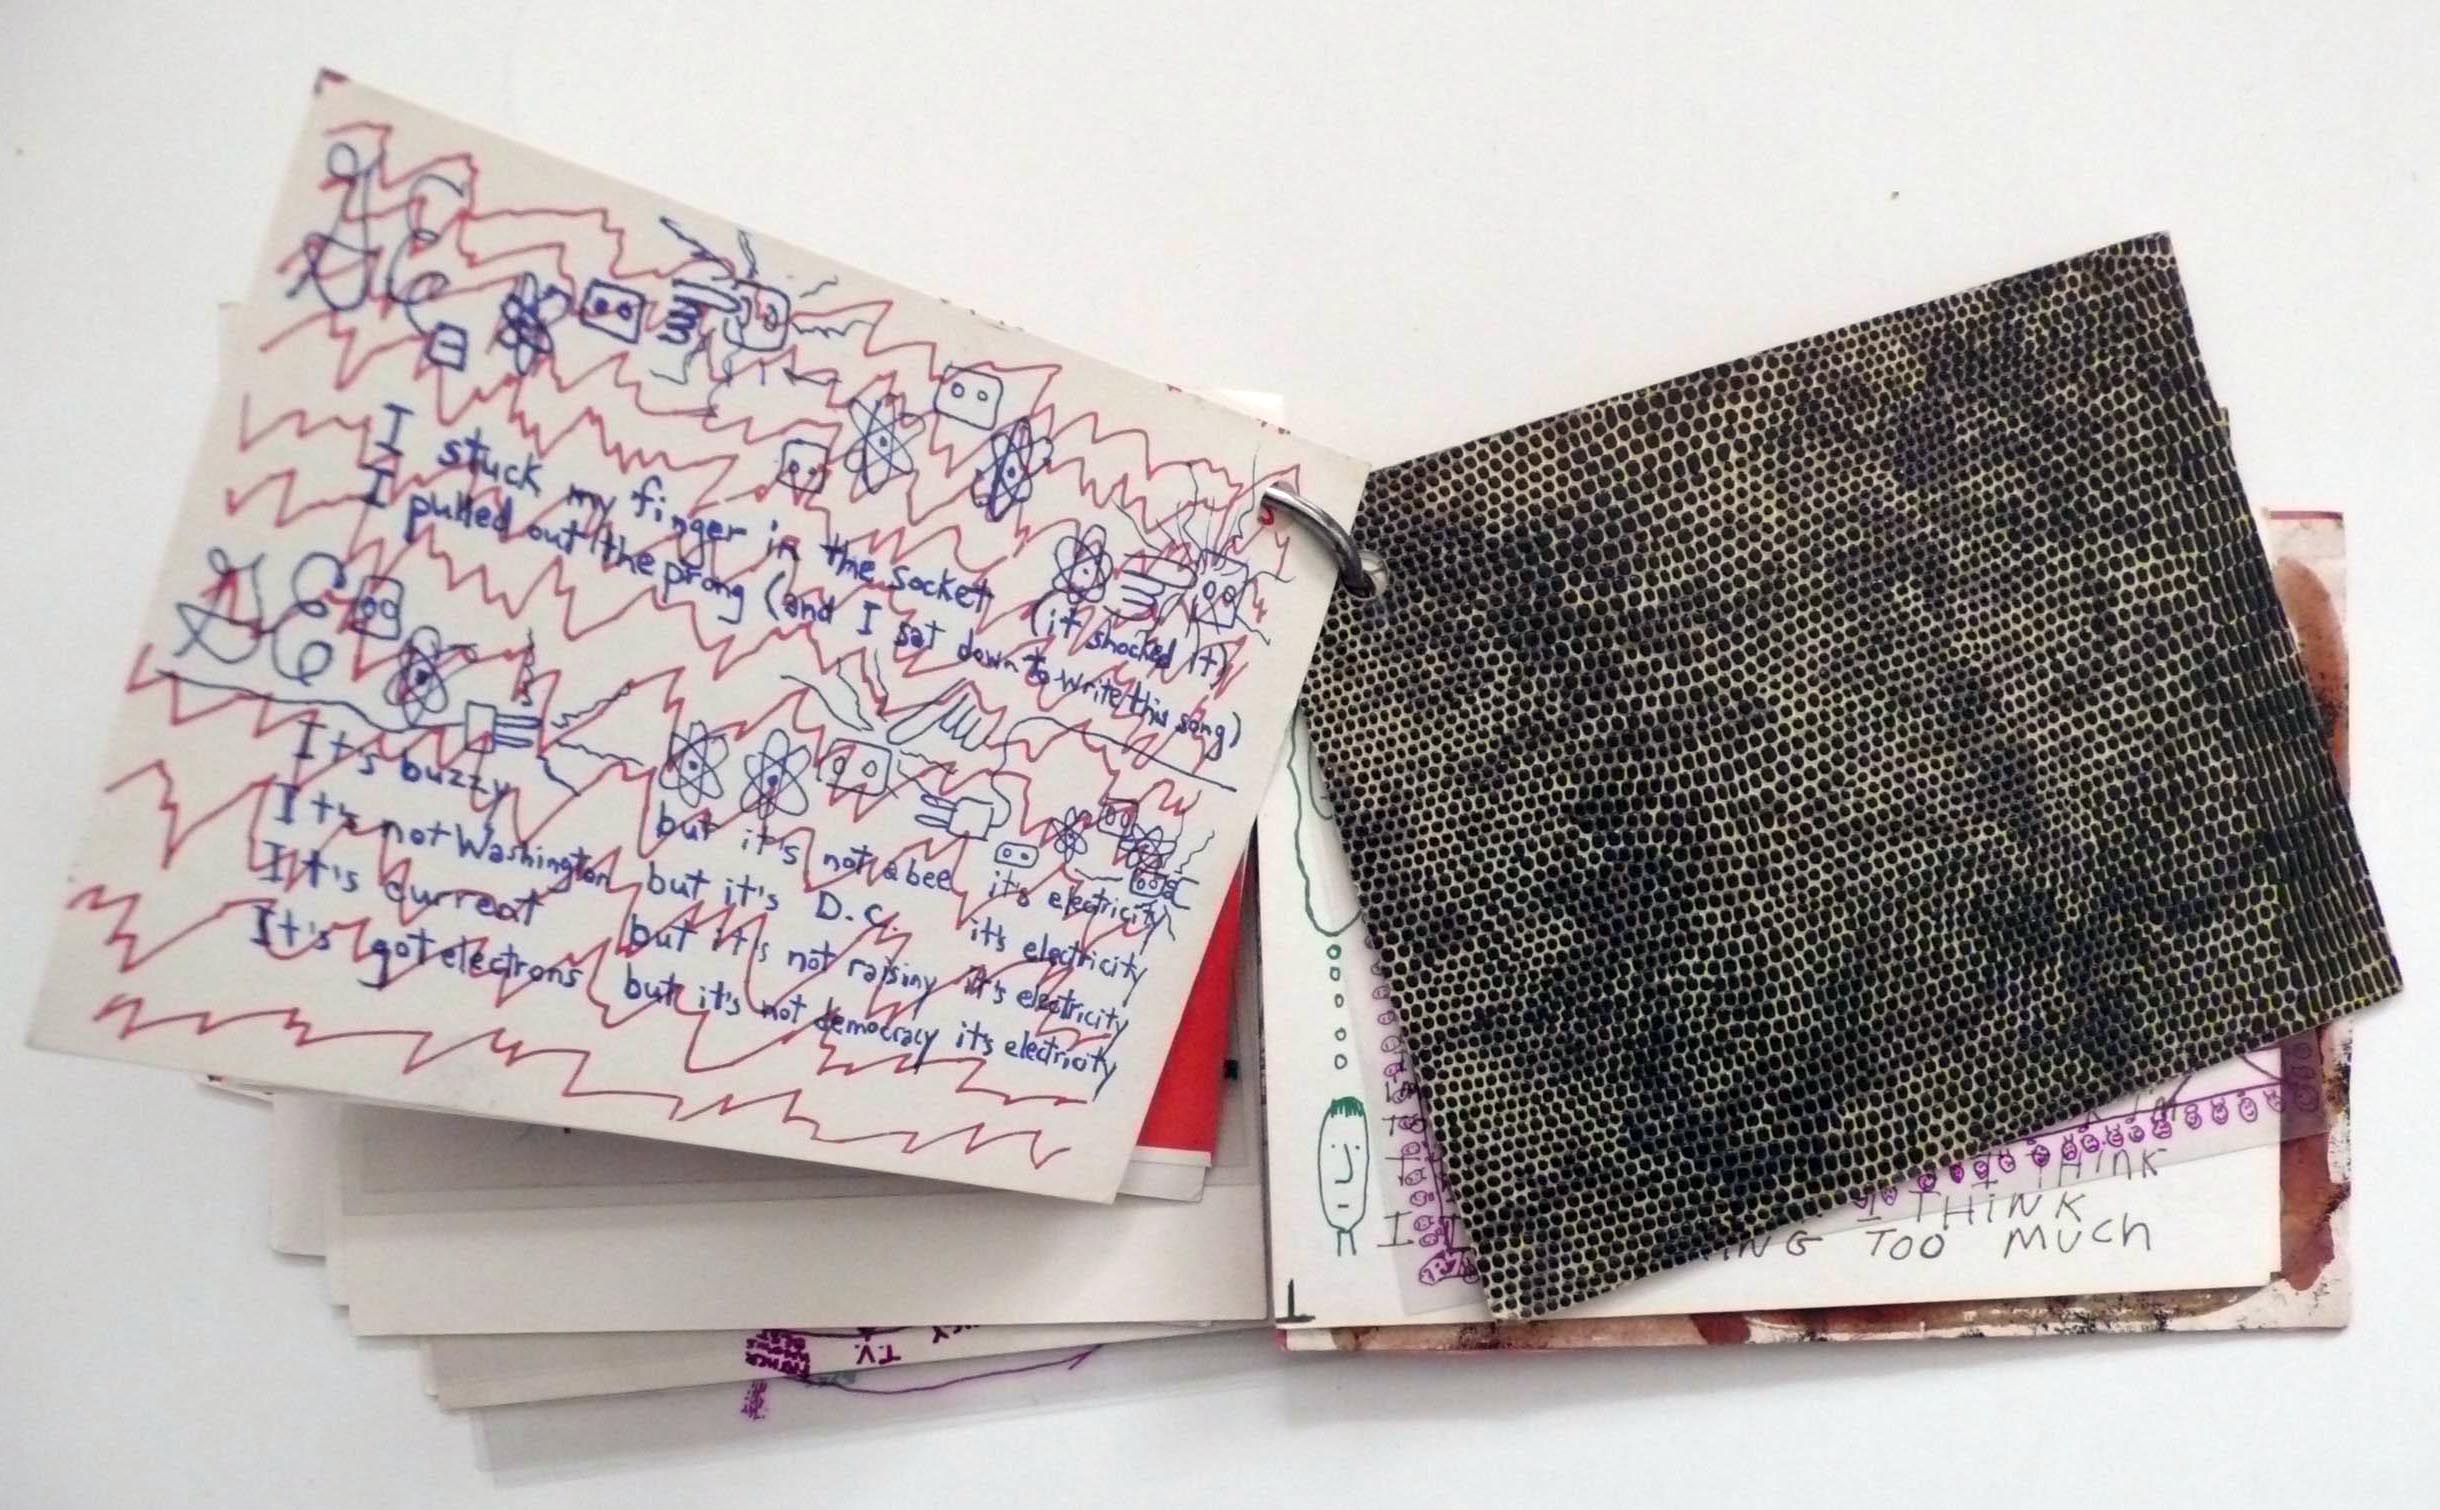 I stuck my finger in the socket (it shocked it)
I pulled out the prong (and I sat down to write this song)
It's buzzy but it's not a bee it's electricity
It's not Washington but it's D.C. it's electricity
It's current but it's not raisiny it's electricity
It's got electrons but it's not democracy it's electricity
I'm
I THINK
I THINK
I
ING TOO MUCH
T.V.